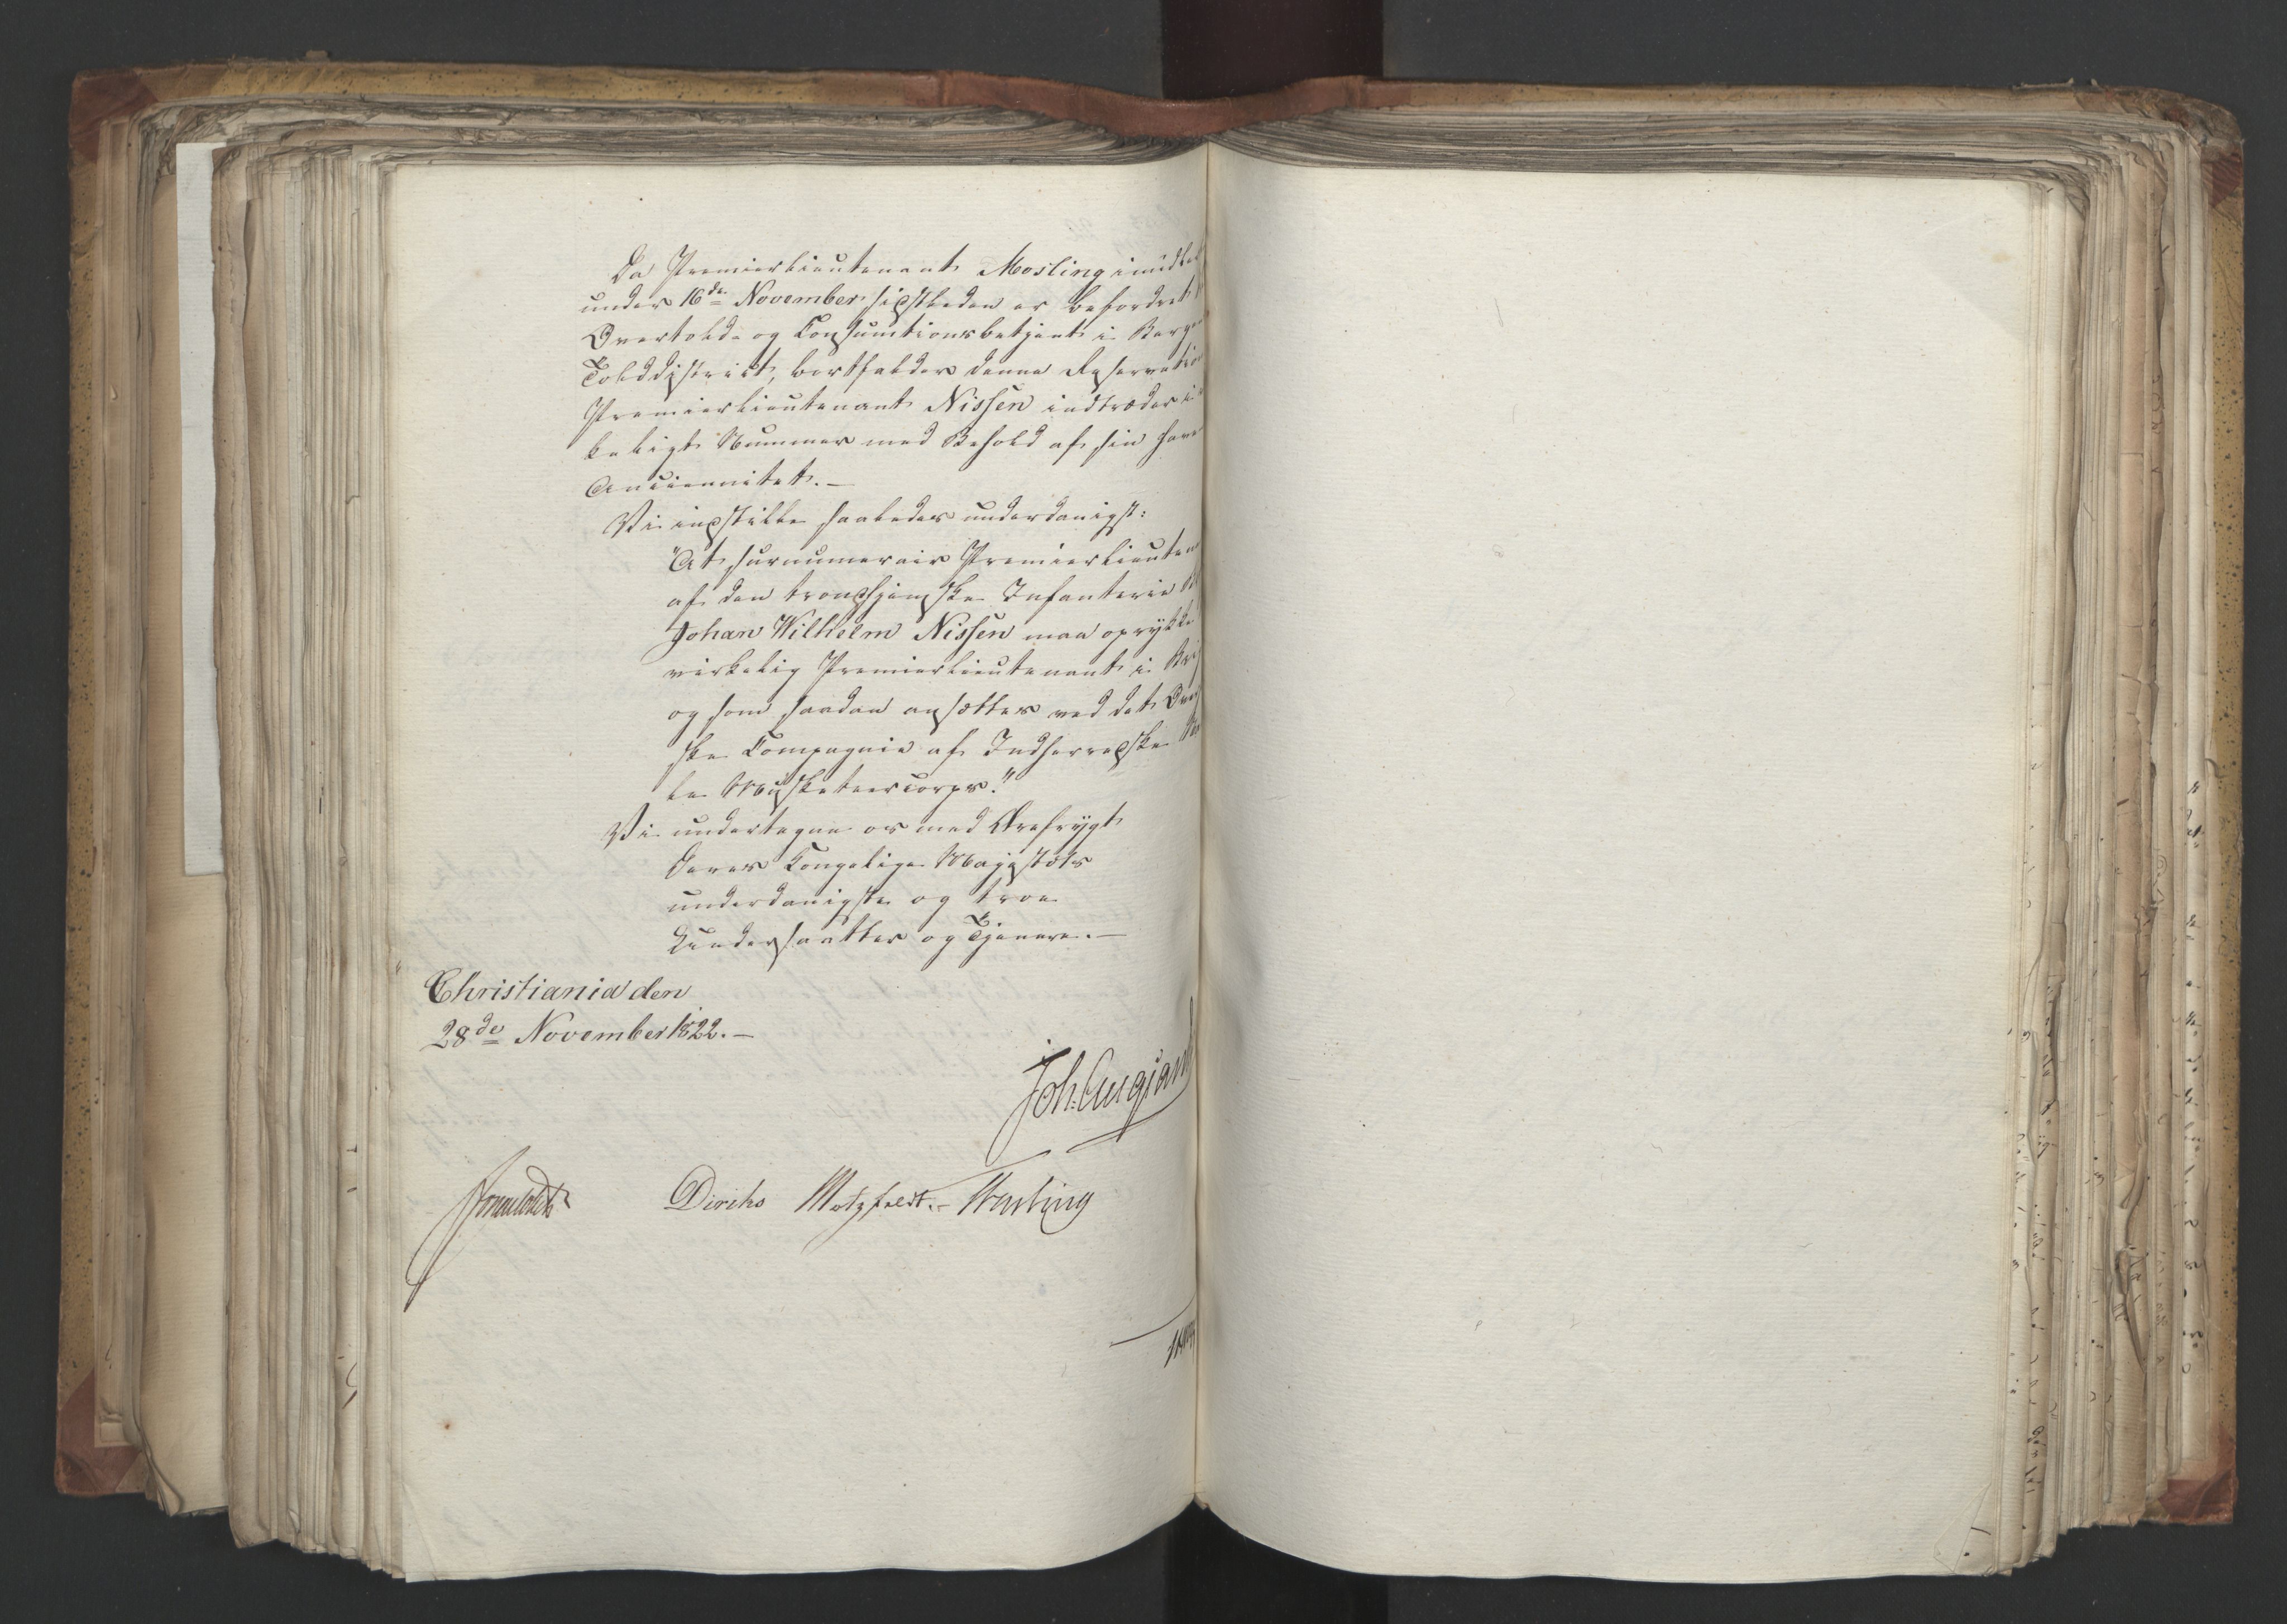 Da Premierlieutenant Mosling imidler
under 16de November sidstleden er befordret
Overtold- og Consumtionsbetjent i Bergen
Tolddistrict, bortfalder denne Reservation
Premierlieutenant Nissen indtræder i
keligt Nummer med Behold af sin hav
Anciennitet.—
Vi indstille saaledes underdanigst:
"At surnumerair Premierlieuten
af den trondhjemske Infanterie
Johan Wilhelm Nissen maa oprykke
virkelig Premierlieutenant i
og som saadan ansættes ved det
ske Compagnie af Indherredske
le Musketeercorps."
Vi undertegne os med Ærefrygt
Deres Kongelige Majestæts
underdanigste og troe
Undersaatter og Tjenere.—
Christiania den
28de November 1822.—
Joh: Aug:
Diriks Motzfeldt.-